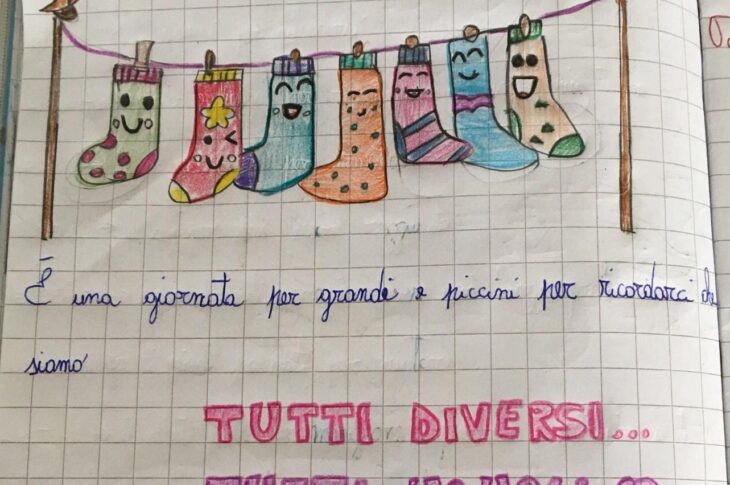 È una giornata per grandi e piccini per ricordarci che
siamo
TUTTI DIVERSI...
TUTTI